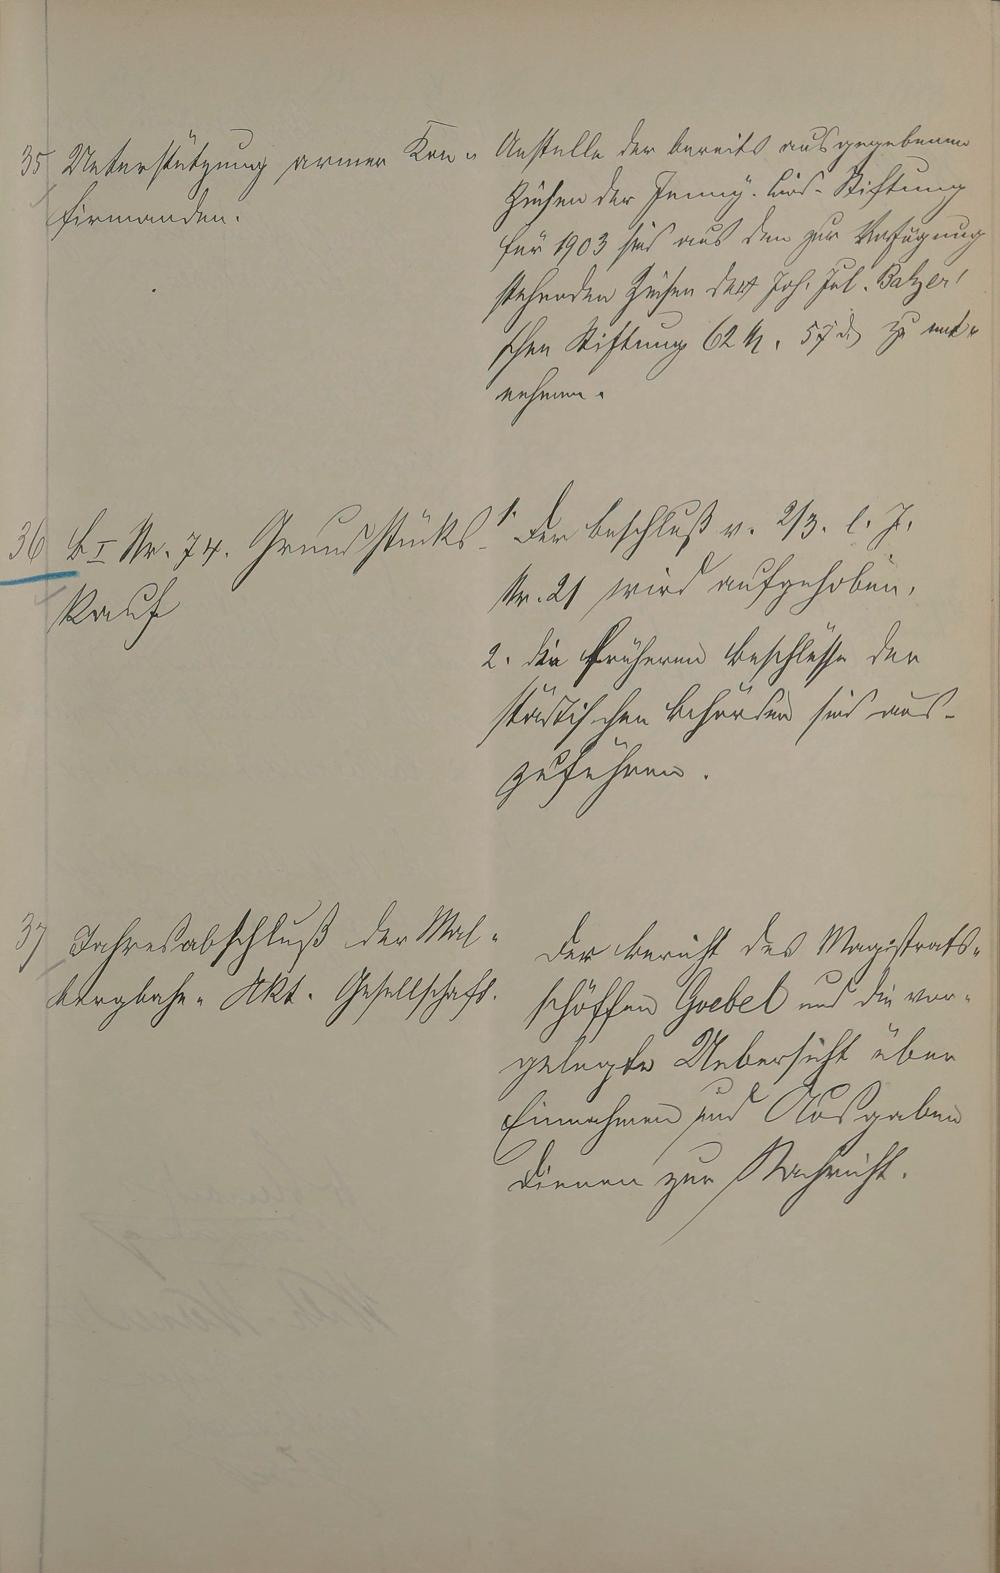 35 Unterstützung armer Kon-
firmanden.
Anstelle der bereits ausgegebenen
Zinsen der Jenny- Stiftung
für 1903 sind aus den zur Verfügung
stehenden Zinsen der Joh. Jul. Balzer'
schen Stiftung 62 M. 57 d zu ent-
nehmen.
36 B I Nr. 74. Grundstücks-
kauf
1. Der Beschluß v. 2/3. l. J.
Nr. 21 wird aufgehoben.
2. die früheren Beschlüsse der
städtischen Behörden sind aus-
zuführen.
37 Jahresabschluß der Mal-
bergbahn- Akt. Gesellschaft.
Der Bericht des Magistrats-
schöffen Goebel und die vor-
gelegte Uebersicht über
Einnahmen und Ausgaben
dienen zur Nachricht.